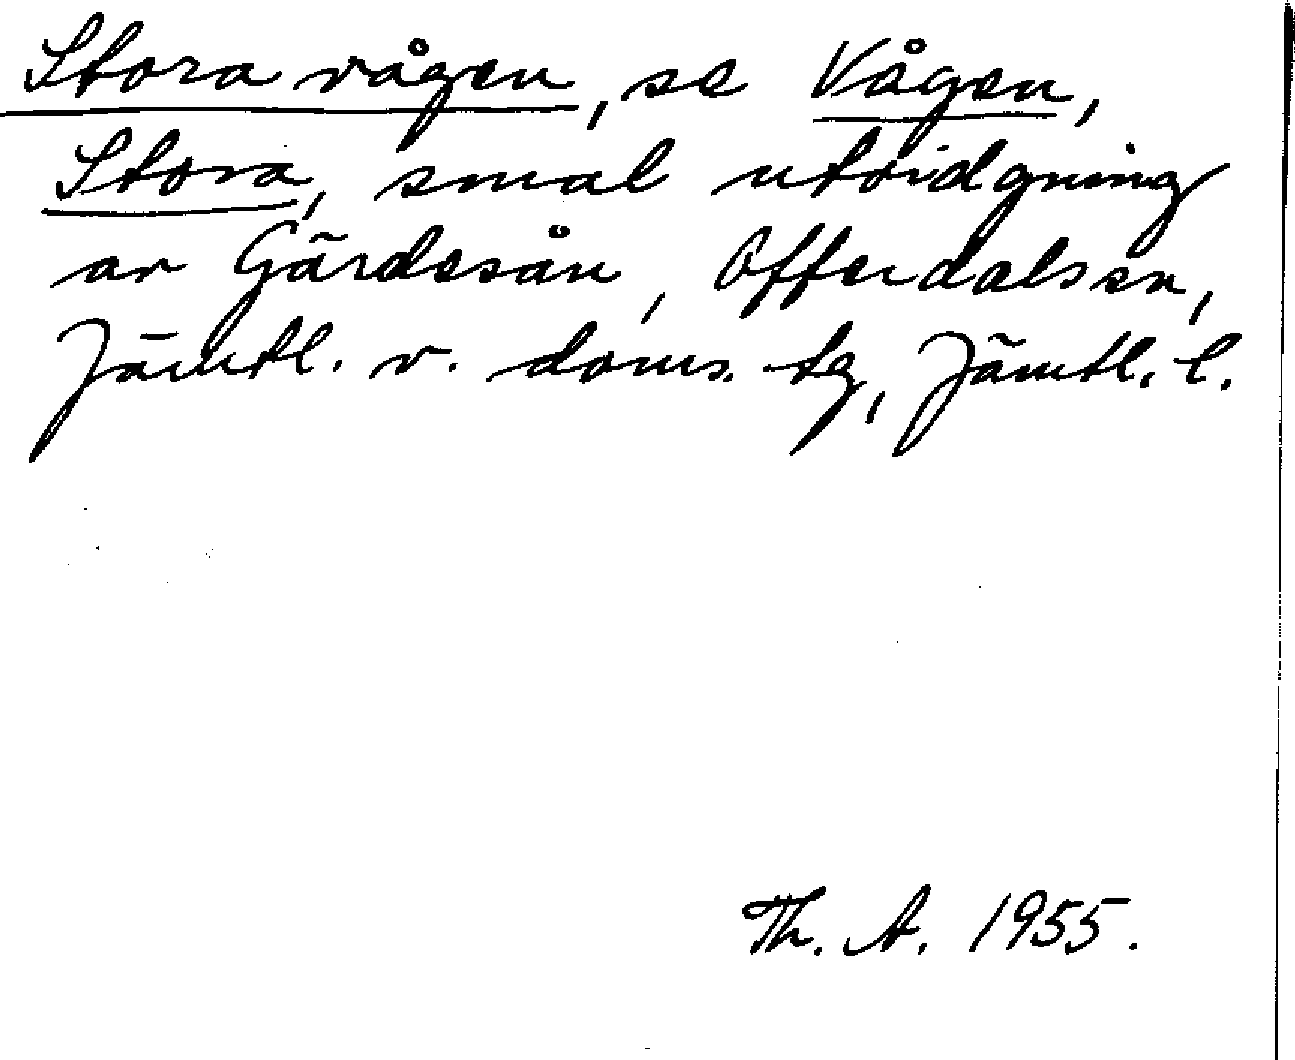 Stora vågen, se Vågen,
Stora, smal utvidgning
av Gärdesån, Offerdals sn,
Jämtl. v. doms. tg, Jämtl. l.
Th. A. 1955.